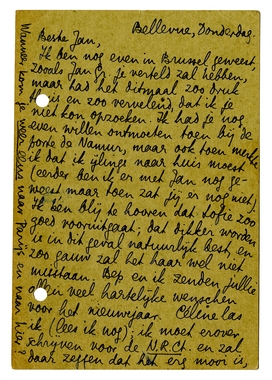 Bellevue, Donderdag.
Beste Jan,
Ik ben nog even in Brussel geweest,
zooals Jan je verteld zal hebben,
maar had het ditmaal zoo druk
thuis en zoo vervelend, dat ik je
niet kon opzoeken. Ik had je nog
even willen ontmoeten toen bij de
porte de Namur, maar ook toen merkte
ik dat ik ijlings naar huis moest
(eerder ben ik er met Jan nog ge-
weest maar toen zat jij er nog niet)
Ik ben blij te hooren dat Sofie zoo
goed vooruitgaat; dat dikker worden
is in dit geval natuurlijk best, en
zoo gauw zal het haar wel niet
misstaan. Bep en ik zenden jullie
allen veel hartelijke wenschen
voor het nieuwejaar. Céline las
ik (lees ik nog); ik moet erover
schrijven voor de N.R.Ct. en zal
daar zeggen dat het erg mooi is,
Wanneer kom je weer eens naar Parijs en naar hier?